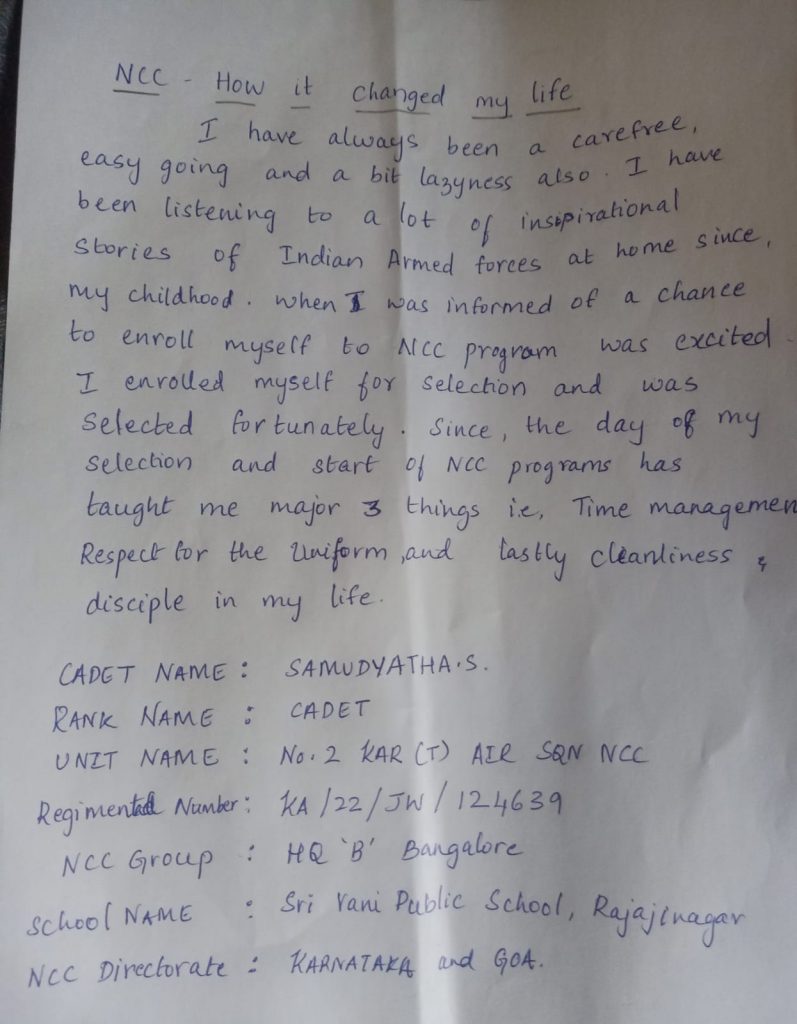 NCC - How it changed my life
I have always been a carefree,
easy going and a bit lazyness also. I have
been listening to a lot of insipirational
stories of Indian Armed forces at home since,
my childhood. when I was informed of a chance
to enroll myself to NCC program was excited.
I enrolled myself for selection and was
selected fortunately. Since, the day of my
selection and start of NCC programs has
taught me major 3 things i.e, Time managemen
Respect for the Uniform, and lastly cleanliness &
disciple in my life.
CADET NAME : SAMUDYATHA.S.
RANK NAME : CADET
UNIT NAME : No. 2 KAR (T) AIR SQN NCC
Regimental Number: KA/22/JW/124639
NCC Group : HQ 'B' Bangalore
School NAME : Sri Vani Public School, Rajajinagar
NCC Directorate : KARNATAKA and GOA.